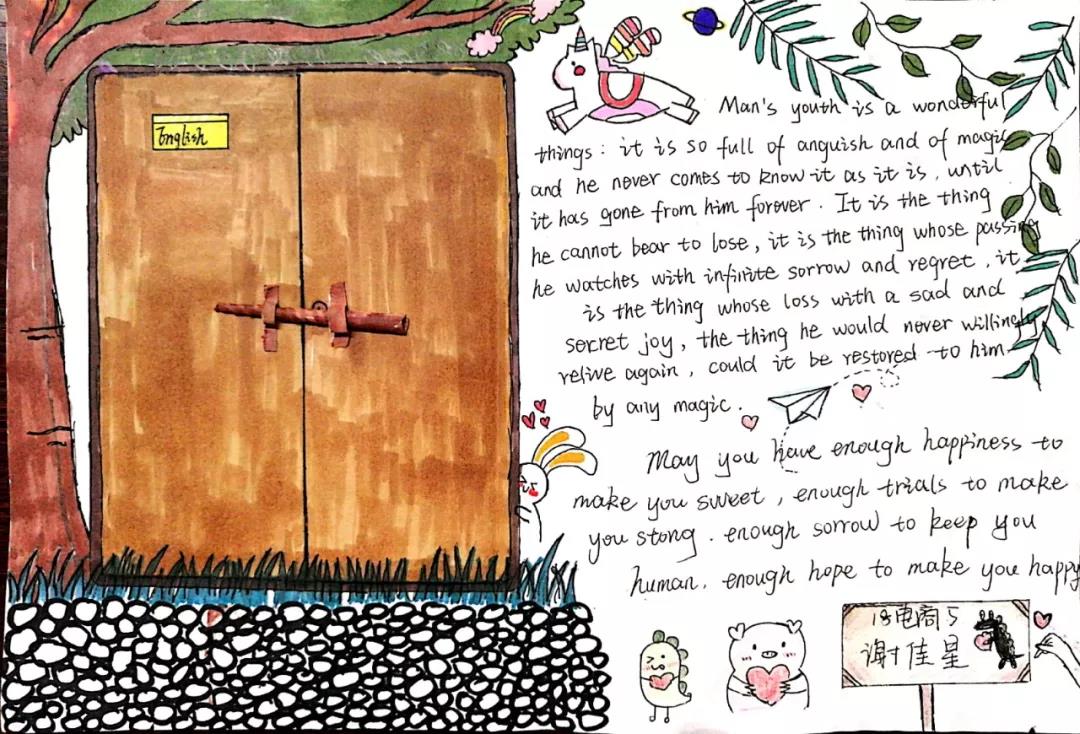 English
Man's youth is a wonderful
things: it is so full of anguish and of magic
and he never comes to know it as it is, until
it has gone from him forever. It is the thing
he cannot bear to lose, it is the thing whose passing
he watches with infinite sorrow and regret, it
is the thing whose loss with a sad and
secret joy, the thing he would never willingly
relive again, could it be restored to him
by any magic.
May you have enough happiness to
make you sweet, enough trials to make
you stong. enough sorrow to keep you
human. enough hope to make you happy
18电商5
谢佳星